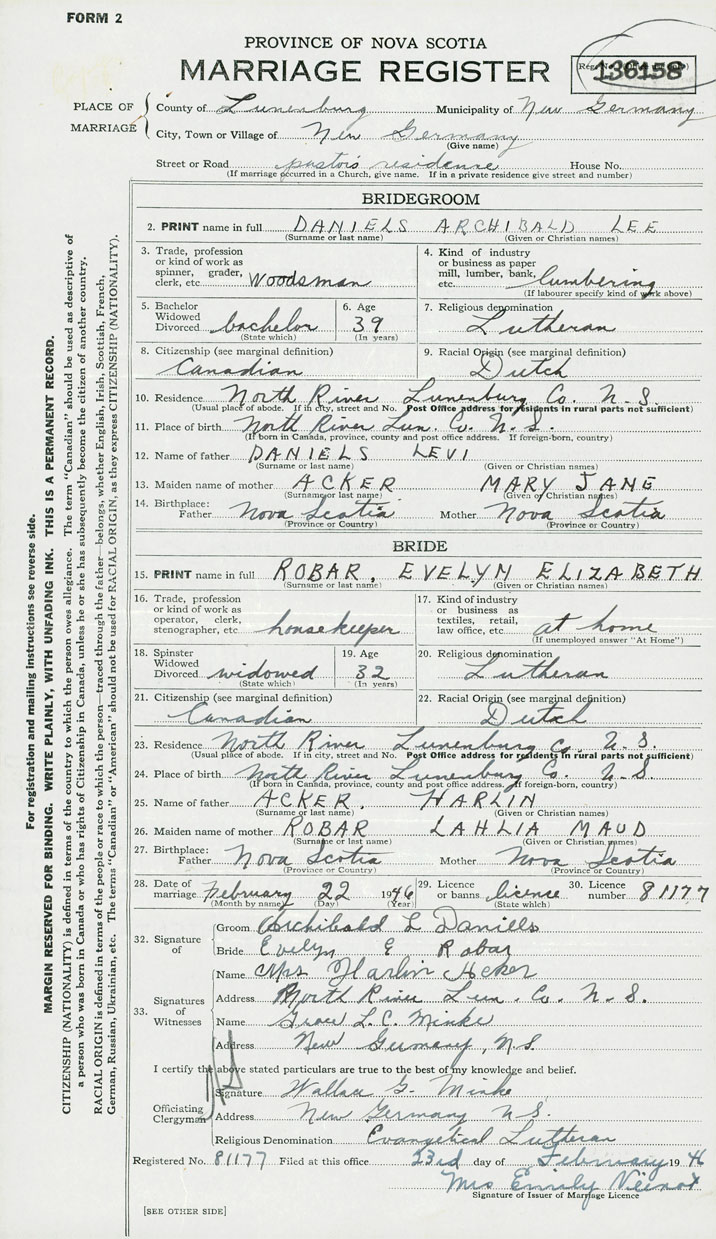 FORM 2
PROVINCE OF NOVA SCOTIA
MARRIAGE REGISTER
136158
PLACE OF MARRIAGE
County of Lunenburg Municipality of New Germany
City, Town or Village of New Germany
(Give name)
Street or Road pastor's residence House No.
(If marriage occurred in a Church, give name. If in a private residence give street and number)
BRIDEGROOM
2. PRINT name in full DANIELS ARCHIBALD LEE
(Surname or last name) (Given or Christian names)
3. Trade, profession or kind of work as spinner, grader, clerk, etc. Woodsman
4. Kind of industry or business as paper mill, lumber, bank, etc. lumbering
(If labourer specify kind of work above)
5. Bachelor Widowed Divorced bachelor
(State which)
6. Age 39
(In years)
7. Religious denomination Lutheran
8. Citizenship (see marginal definition) Canadian
9. Racial Origin (see marginal definition) Dutch
10. Residence North River Lunenburg Co. N.S.
(Usual place of abode. If in city, street and No. Post Office address for residents in rural parts not sufficient)
11. Place of birth North River Lun. Co. N.S.
(If born in Canada, province, county and post office address. If foreign-born, country)
12. Name of father DANIELS LEVI
(Surname or last name) (Given or Christian names)
13. Maiden name of mother ACKER MARY JANE
(Surname or last name) (Given or Christian names)
14. Birthplace: Father Nova Scotia Mother Nova Scotia
(Province or Country) (Province or Country)
BRIDE
15. PRINT name in full ROBAR, EVELYN ELIZABETH
(Surname or last name) (Given or Christian names)
16. Trade, profession or kind of work as operator, clerk, stenographer, etc. housekeeper
17. Kind of industry or business as textiles, retail, law office, etc. at home
(If unemployed answer "At Home")
18. Spinster Widowed Divorced widowed
(State which)
19. Age 32
(In years)
20. Religious denomination Lutheran
21. Citizenship (see marginal definition) Canadian
22. Racial Origin (see marginal definition) Dutch
23. Residence North River Lunenburg Co. N.S.
(Usual place of abode. If in city, street and No. Post Office address for residents in rural parts not sufficient)
24. Place of birth North River Lunenburg Co. N.S.
(If born in Canada, province, county and post office address. If foreign-born, country)
25. Name of father ACKER, HARLIN
(Surname or last name) (Given or Christian names)
26. Maiden name of mother ROBAR LAHLIA MAUD
(Surname or last name) (Given or Christian names)
27. Birthplace: Father Nova Scotia Mother Nova Scotia
(Province or Country) (Province or Country)
28. Date of marriage February 22 1946
(Month by name) (Day) (Year)
29. Licence or banns license
(State which)
30. Licence number 81177
32. Signature of
Groom Archibald L Daniells
Bride Evelyn E Robar
33. Signatures of Witnesses
Name Mrs Harlin Acker
Address North River Lun. Co. N.S.
Name Grace L.C. Minke
Address New Germany, N.S.
I certify the above stated particulars are true to the best of my knowledge and belief.
Officiating Clergyman
Signature Wallace G. Minke
Address New Germany N.S.
Religious Denomination Evangelical Lutheran
Registered No. 81177 Filed at this office 23rd day of February 1946
Mrs Emily
Signature of Issuer of Marriage Licence
[SEE OTHER SIDE]
For registration and mailing instructions see reverse side.
MARGIN RESERVED FOR BINDING. WRITE PLAINLY, WITH UNFADING INK. THIS IS A PERMANENT RECORD.
CITIZENSHIP (NATIONALITY) is defined in terms of the country to which the person owes allegiance. The term "Canadian" should be used as descriptive of
a person who was born in Canada or who has rights of Citizenship in Canada, unless he or she has subsequently become the citizen of another country.
RACIAL ORIGIN is defined in terms of the people or race to which the person—traced through the father—belongs, whether English, Irish, Scottish, French,
German, Russian, Ukrainian, etc. The terms "Canadian" or "American" should not be used for RACIAL ORIGIN, as they express CITIZENSHIP (NATIONALITY).